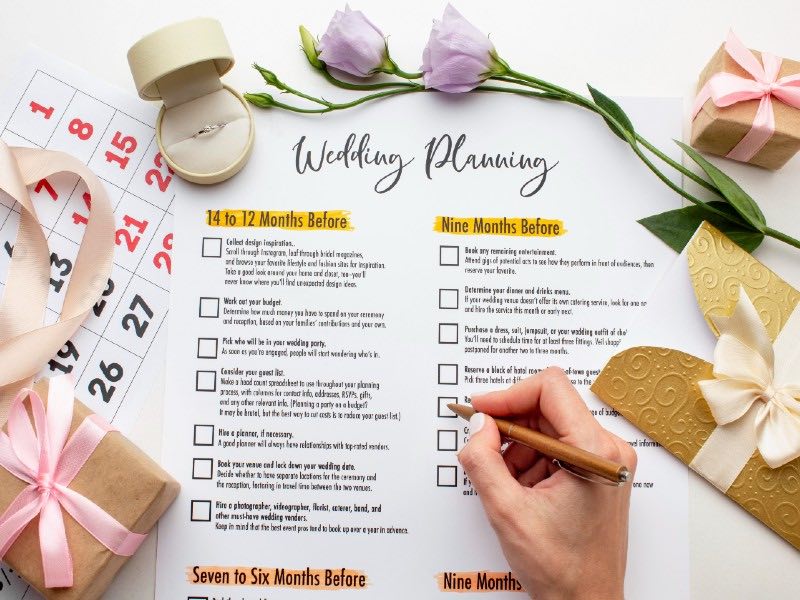 Wedding Planning
14 to 12 Months Before
Collect design inspiration.
Scroll through Instagram, leaf through bridal magazines,
and browse your favorite lifestyle and fashion sites for inspiration.
Take a good look around your home and closet, too–you'll
never know where you'll find unexpected design ideas.
Work out your budget.
Determine how much money you have to spend on your ceremony
and reception, based on your families' contributions and your own.
Pick who will be in your wedding party.
As soon as you're engaged, people will start wondering who's in.
Consider your guest list.
Make a head count spreadsheet to use throughout your planning
process, with columns for contact info, addresses, RSVPs, gifts,
and any other relevant info. (Planning a party on a budget?
It may be brutal, but the best way to cut costs is to reduce your guest list.)
Hire a planner, if necessary.
A good planner will always have relationships with top-rated vendors.
Book your venue and lock down your wedding date.
Decide whether to have separate locations for the ceremony and
the reception, factoring in travel time between the two venues.
Hire a photographer, videographer, florist, caterer, band, and
other must-have wedding vendors.
Keep in mind that the best event pros tend to book up over a year in advance.
Seven to Six Months Before
Nine Months Before
Book any remaining entertainment.
Attend gigs of potential acts to see how they perform in front of audiences, then
reserve your favorite.
Determine your dinner and drinks menu.
If your wedding venue doesn't offer its own catering service, look for one
and hire the service this month or early next.
Purchase a dress, suit, jumpsuit, or your wedding outfit of
You'll need to schedule time for at least three fittings. Veil
postponed for another two to three months.
Reserve a block of hotel guests
Pick three hotels at
of budget
information
new
Nine Months
1
8
15
22
7
14
21
28
6
13
20
27
19
26